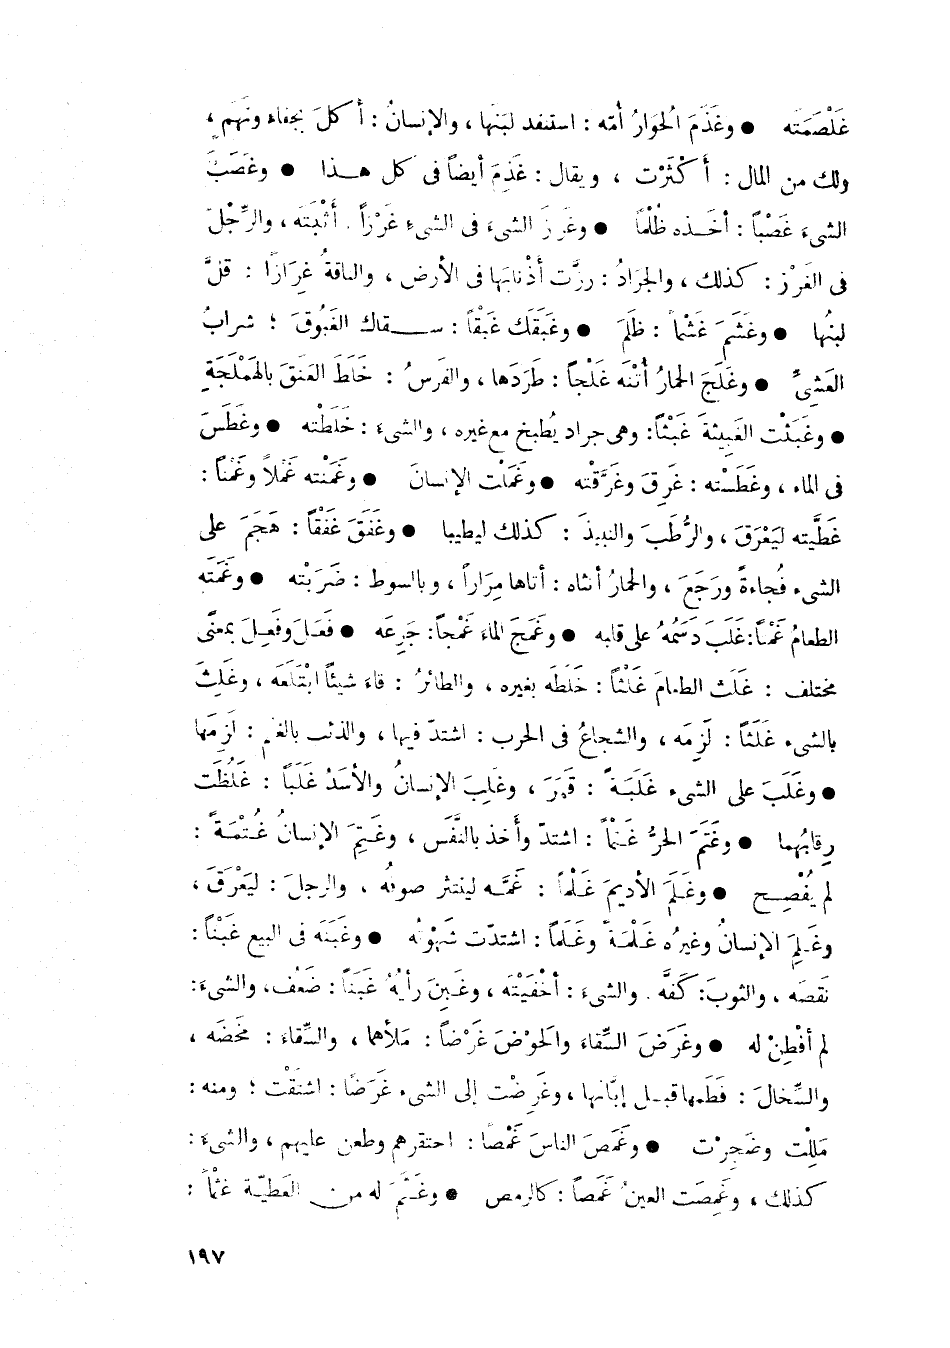 غَلْصَمَتَه ● وغَذَمَ الحُوَارُ أمّه : استنفد لبَنَها ، والإنسانُ : أكلَ بجفاء ونَهَمٍ ،
ولك من المال : أَكْثَرْت ، ويقال : غَذِمَ أيضاً فى كل هـذا ● وغَصَبَ
الشىءَ غَصْباً : أخَـذه ظُلْمًا ● وغَرَزَ الشىءَ فى الشىءِ غَرْزاً . أَثْبَتَه ، والرِّجْلَ
فى الغَرْز : كذلك ، والجَرَادُ : رزَّت أذْنابَها فى الأرض ، والناقةُ غِرَازًا : قلَّ
لبنُها ● وغَشَمَ غَشْماً : ظَلَمَ ● وغَبَقَك غَبْقاً : سـقاك الغَبُوقَ ؛ شرابُ
العَشِىِّ ● وغَلَجَ الحمارُ أُتُنَه غَلْجاً : طَرَدَها ، والفَرسُ : خَلَطَ العَنَقَ بالهَمْلَجَةِ
● وغَبَثْت الغَبِيثَةَ غَبْثاً : وهى جراد يُطبخ مع غيره ، والشىءَ : خَلَطْته ● وغَطَسَ
فى الماء ، وغَطَسْته : غَرِقَ وغَرَّقْته ● وغَمَلْت الإنسانَ ● وغَمَنْته غَمْلاً وغَمْناً :
غَطَّيته ليَعْرَقَ ، والرُّطَبَ والنبيذَ : كذلك ليطيبا ● وغَفَقَ غَفْقاً : هَجَمَ على
الشىء فُجاءةً ورَجَعَ ، والحمارُ أنثاه : أتاها مِرَاراً ، وبالسوط : ضَرَبْته ● وغَمَتَه
الطعامُ غَمْتاً : غَلَبَ دَسَمُهُ على قلبه ● وغَمَجَ الماءَ غَمْجاً : جَرِعَه ● فَعَلَ وفَعِلَ بمعنًى
مختلف : غَلَث الطعامَ غَلْثاً : خَلَطَه بغيره ، والطائرُ : قاء شيئاً ابْتَلَعَه ، وغَلِثَ
بالشىء غَلَثاً : لَزِمَه ، والشجاعُ فى الحرب : اشتدّ فيها ، والذئب بالغنم : لَزِمَها
● وغَلَبَ على الشىء غَلَبَةً : قَهَرَ ، وغَلِبَ الإنسانُ والأسَدُ غَلَباً : غَلُظَت
رِقابُهما ● وغَتَمَ الحرُّ غَتْماً : اشتدّ وأخذ بالنَّفَس ، وغَتِمَ الإنسانُ غُتْمَةً :
لم يُفْصِـح ● وغَلَمَ الأديمَ غَلْماً : غَمَّـه لينتثر صوفُه ، والرجلَ : ليَعْرَقَ ،
وغَلِمَ الإنسانُ وغيرُه غُلْمَةً وغَلَماً : اشتدّت شَهْوتُه ● وغَبَنَه فى البيع غَبْناً :
نَقصَه ، والثوبَ : كَفَّه . والشىءَ : أخْفَيْتَه ، وغَبِنَ رأيُهُ غَبَناً : ضَعُف، والشىءَ :
لم أفْطِنْ له ● وغَرَضَ السِّقاءَ والحَوْضَ غَرْضاً : مَلأهما ، والسِّقاءَ : مَخضَه ،
والسِّخالَ : فَطَمها قبـل إبَّانها ، وغَرِضْت إلى الشىء غَرَضًا : اشتَقْت ؛ ومنه :
مَلِلْت وضَجِرْت ● وغَمَصَ الناسَ غَمْصًا : احتقرهم وطعن عليهم ، والشىءَ :
كذلك ، وغَمِصَت العينُ غَمَصاً : كالرمص ● وغَـثَمَ له من العَطِيّـة غَثْماً :
١٩٧